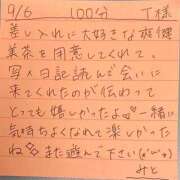 9/6 100分 T様
差し入れに大好きな旅健
美茶を用意してくれて、
写メ日記読んで会いに
来てくれたのが伝わって
とっても嬉しかったよ♡一緒に
気持ちよくなれて楽しかった
ね♡また遊んで下さい(*'ω'*)
みと